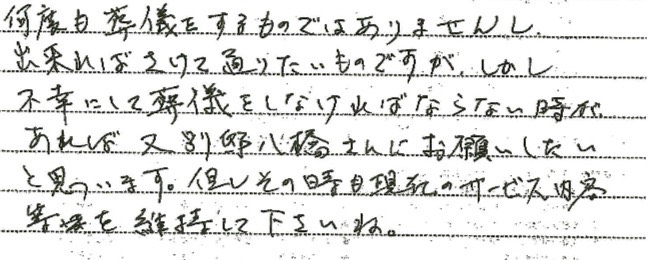 何度も葬儀をするものではありませんし、
出来ればさけて通りたいものですが、しかし
不幸にして葬儀をしなければならない時が
あれば又別邸八橋さんにお願いしたい
と思います。但しその時も現在のサービス内容
等を維持して下さいね。